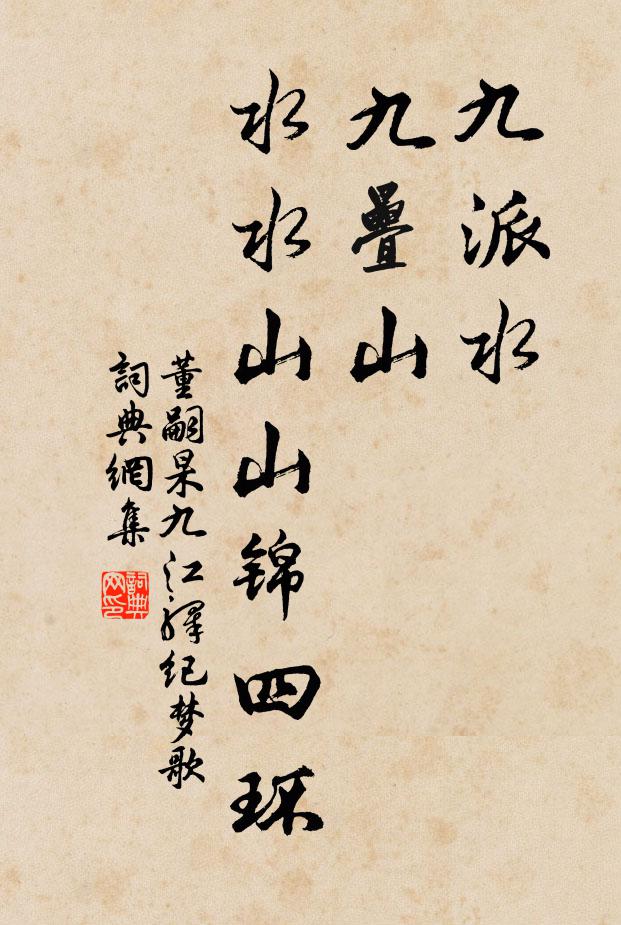 九派水
九疊山
水水山山锦四环
董嗣杲九江驿纪梦歌
詞典網集
詞典网印